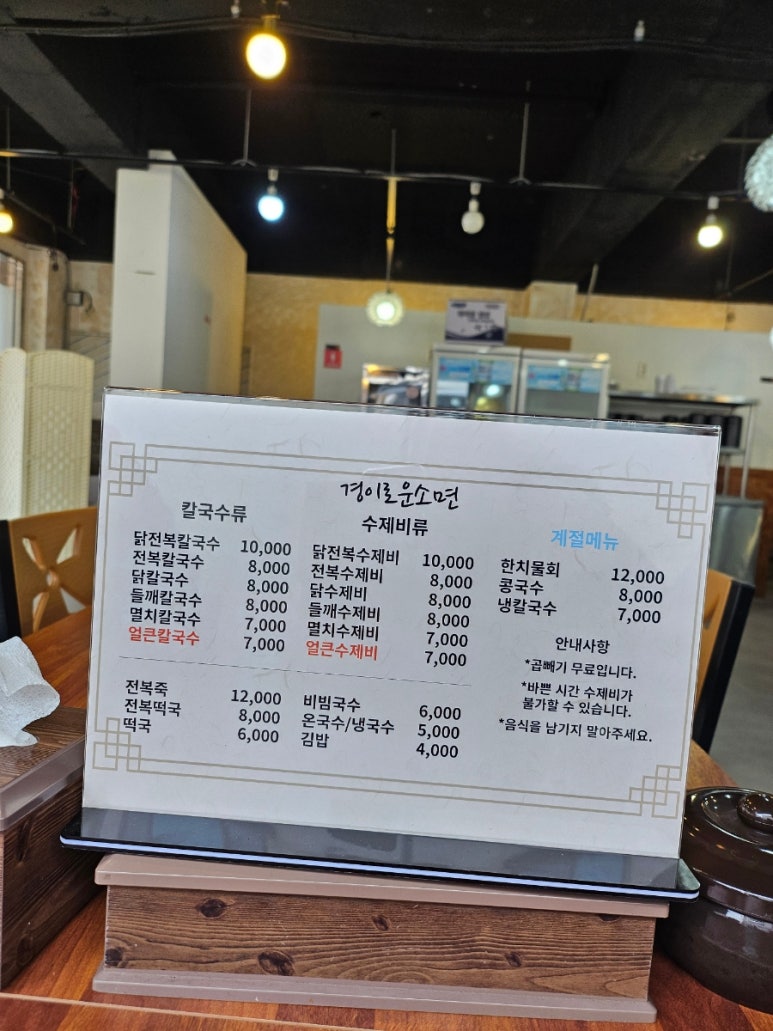 경이로운소면
칼국수류
닭전복칼국수 10,000
전복칼국수 8,000
닭칼국수 8,000
들깨칼국수 8,000
멸치칼국수 7,000
얼큰칼국수 7,000
수제비류
닭전복수제비 10,000
전복수제비 8,000
닭수제비 8,000
들깨수제비 8,000
멸치수제비 7,000
얼큰수제비 7,000
계절메뉴
한치물회 12,000
콩국수 8,000
냉칼국수 7,000
안내사항
*곱빼기 무료입니다.
*바쁜 시간 수제비가
불가할 수 있습니다.
*음식을 남기지 말아주세요.
전복죽 12,000
전복떡국 8,000
떡국 6,000
비빔국수 6,000
온국수/냉국수 5,000
김밥 4,000